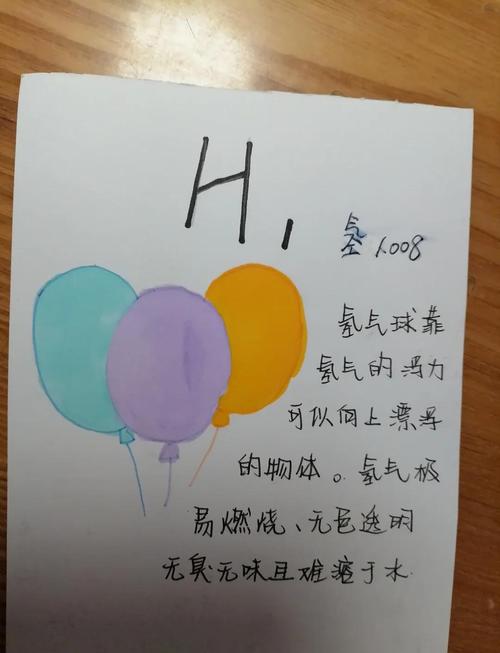 H 1
氢 1.008
氢气球靠
氢气的浮力
可以向上漂浮
的物体。氢气极
易燃烧、无色透明
无臭无味且难溶于水